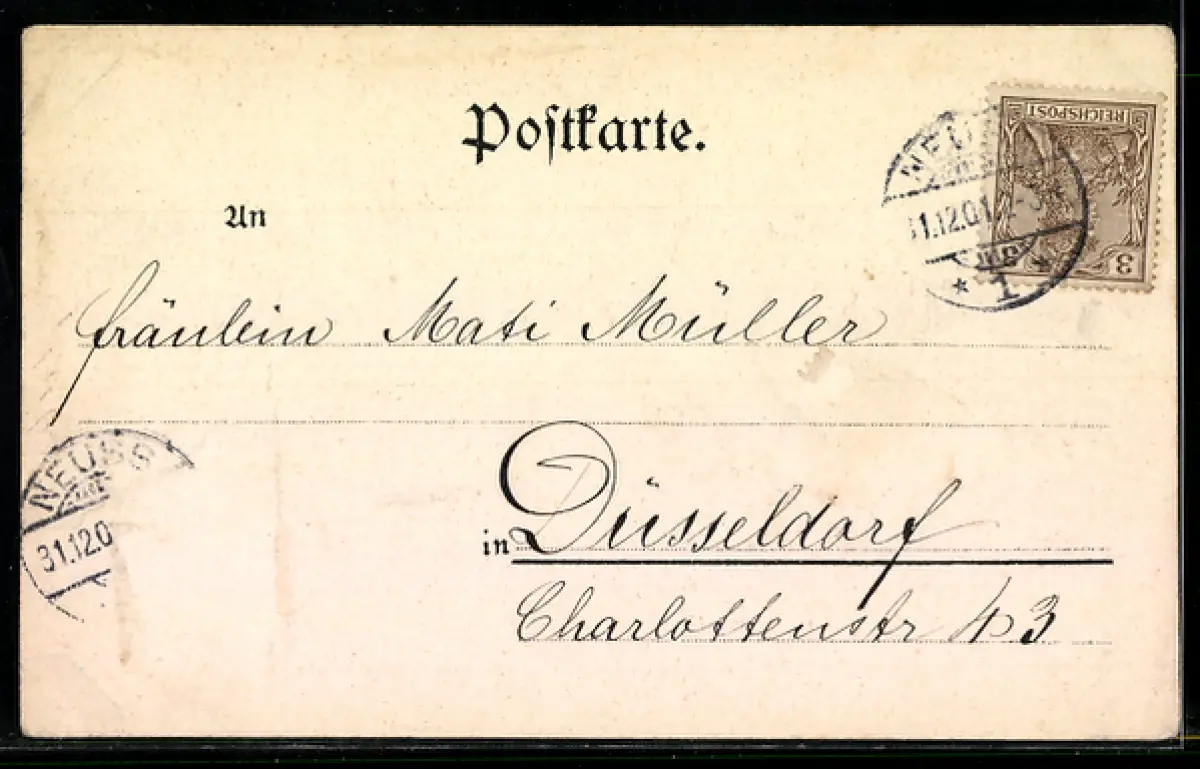 Postkarte.
REICHSPOST
3
NEUSS
31.12.01
* 1 *
An
Fräulein Mati Müller
NEUSS
31.12.0
in Düsseldorf
Charlottenstr 43